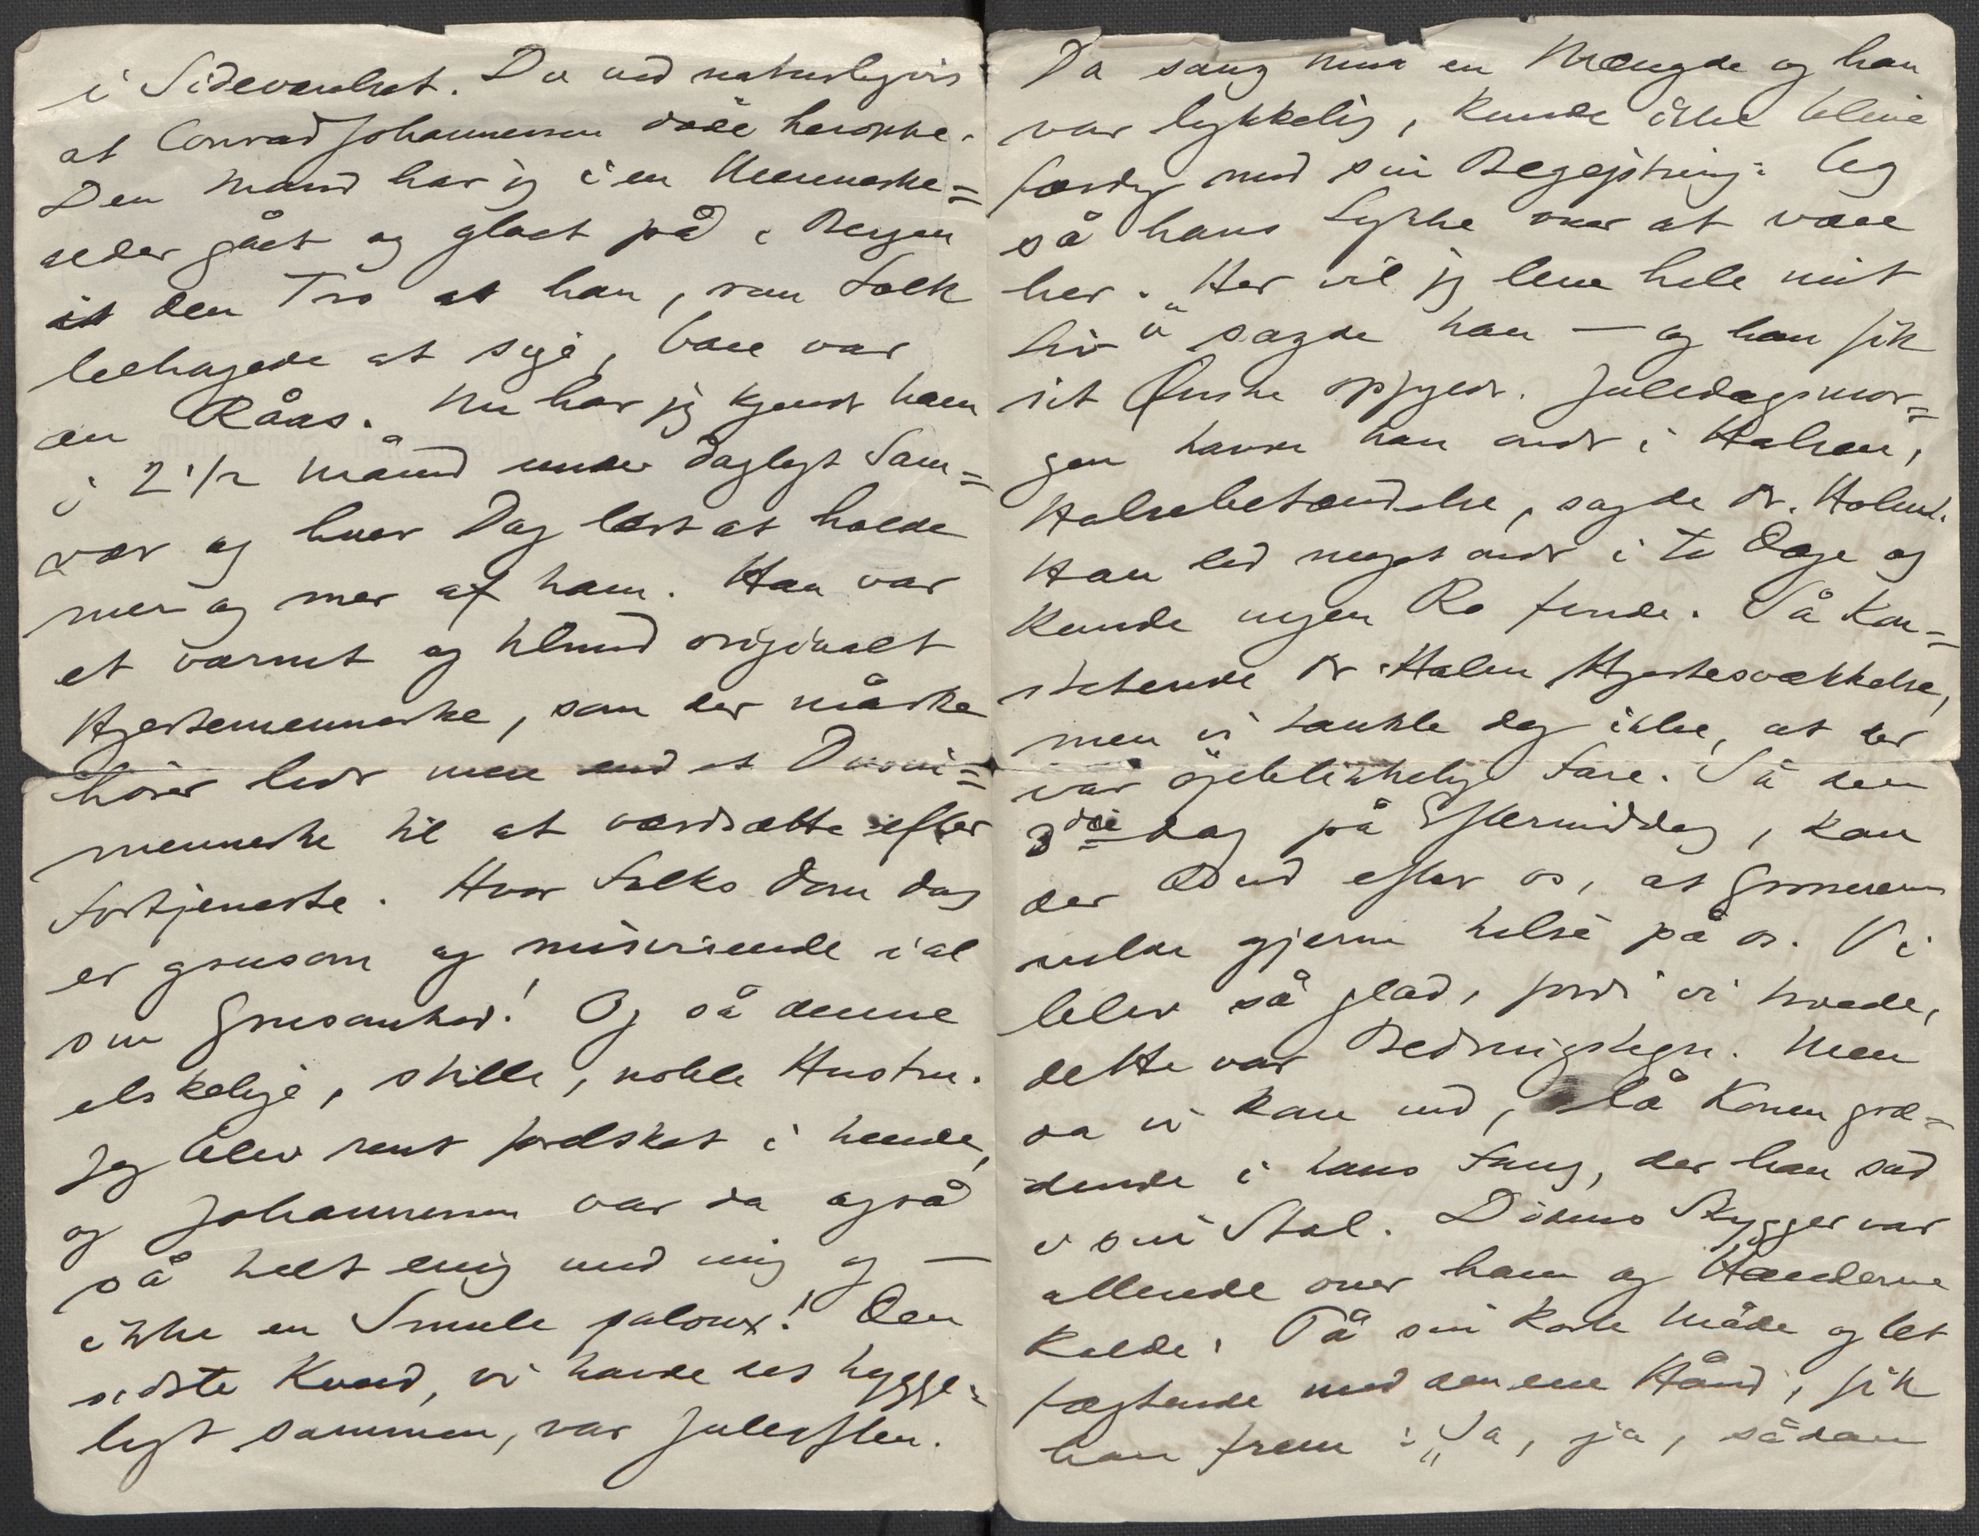 i Sideværelset. Du ved naturligvis
at Conrad Johannesen døde heroppe.
Den Mand har jeg i en Menneske=
alder gået og gloet på i Bergen
i den Tro at han, som Folk
behagede at sige, bare var
en Råas. Nu har jeg kjendt ham
i 2 1/2 Måned under dagligt Sam=
vær og hver Dag lært at holde
mer og mer af ham. Han var
et varmt og blund originalt
Hjertemenneske, som der måske
hører lidt mere end et Dusin=
menneske til at værdsætte efter
Fortjeneste. Hvor Folks Dom dog
er grusom og misvisende i al
sin Grusomhed! Og så denne
elskelige, stille, noble Hustru.
Jeg blev rent forelsket i hende,
og Johannesen var da også
så helt enig med mig og —
ikke en Smule jaloux! Den
sidste Kveld, vi havde det hygge=
ligt sammen, var Juleaften.
Da sang Nina en Mængde og han
var lykkelig, kunde ikke blive
færdig med sin Begejstring. Og
så hans Lykke over at være
her. "Her vil jeg leve hele mit
Liv" sagde han — og han fik
sit Ønske opfyldt. Juledagsmor=
gen havde han ondt i Halsen,
Halsebetændelse, sagde Dr. Holm.
Han led meget ondt i to Dage og
kunde ingen Ro finde. Så kon=
staterede Dr. Holm Hjertesvækkelse,
men vi tænkte dog ikke, at der
var øjeblikkelig Fare. Så den
3die Dag på Eftermiddag, kom
der Bud efter os, at Grosereren
vilde gjerne hilse på os. Vi
blev så glad, fordi vi troede,
dette var Bedringstegn. Men
da vi kom ind, lå Konen græ=
dende i hans Fang, der han sad
i sin Stol. Dødens Skygger var
allerede over ham og Hænderne
kolde. På sin korte Måde og let
fægtende med den ene Hånd, fik
han frem: "Ja, ja, sådan